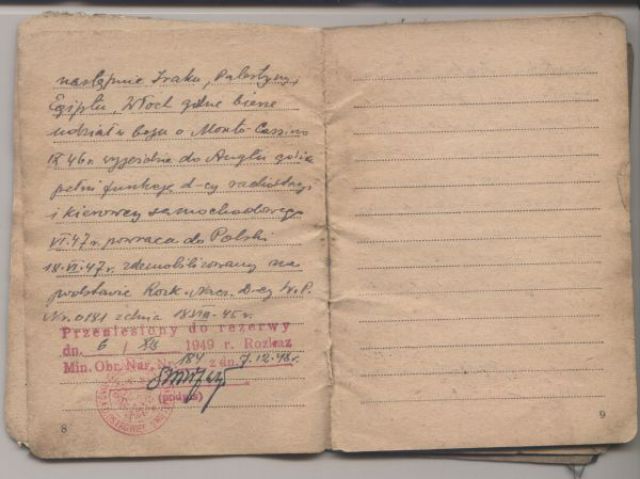 następnie Iraku, Palestyny,
Egiptu, Włoch gdzie bierze
udział w boju o Monte-Cassino
IX 46 r. wyjeżdża do Anglii gdzie
pełni funkcję d-cy radiostacji
i kierowcy samochodowego
VI.47 r. powraca do Polski
18.VI.47 r. zdemobilizowany na
podstawie Rozk. Nacz. D-cy W.P.
Nr. 0181 z dnia 18VIII-45 r.
Przeniesiony do rezerwy
dn. 6 / 1949 r. Rozkaz
Min. Obr. Nar. Nr. 184 z dn. 7.12.48 r.
(podpis)
8
9